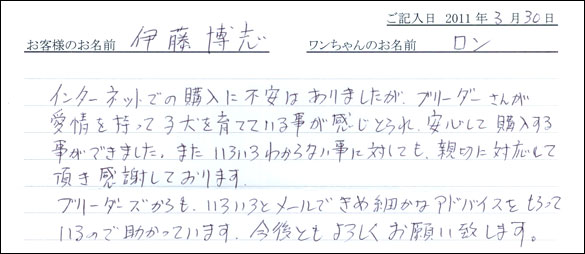 ご記入日 2011年3月30日
お客様のお名前 伊藤博志 ワンちゃんのお名前 ロン
インターネットでの購入に不安はありましたが、ブリーダーさんが
愛情を持って子犬を育てている事が感じとられ、安心して購入する
事ができました。また いろいろわからない事に対しても、親切に対応して
頂き感謝しております。
ブリーダーズからも、いろいろとメールできめ細かなアドバイスをもらって
いるので助かっています。今後ともよろしくお願い致します。